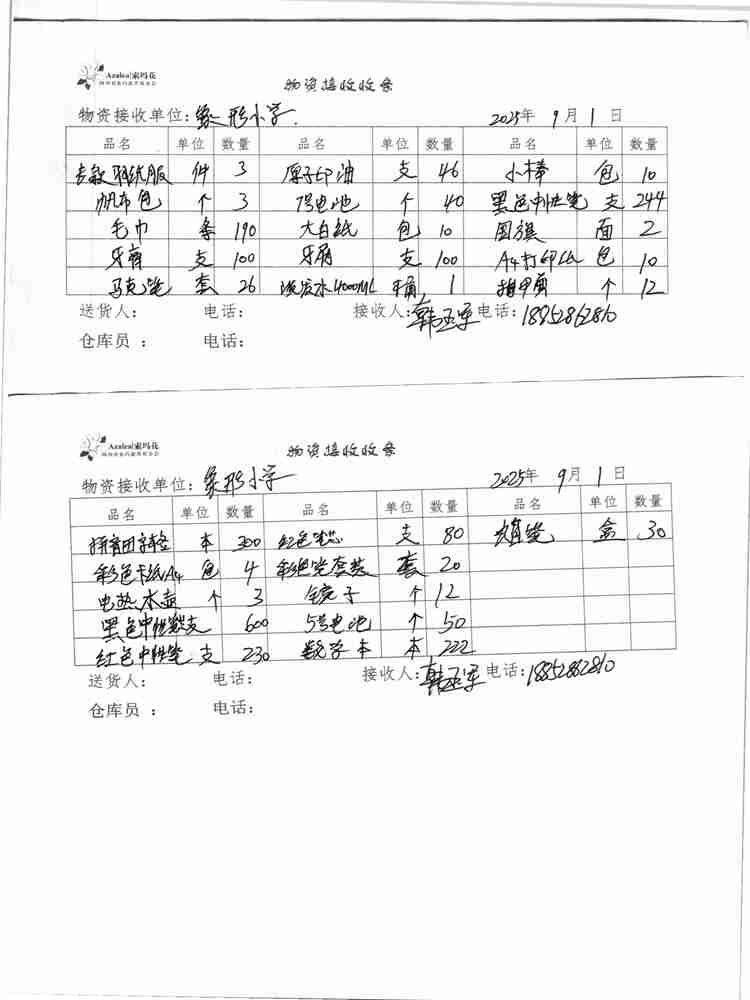 Azalea|索玛花
物资接收收条
物资接收单位：象形小学 2025年 9月 1日
品名 单位 数量 品名 单位 数量 品名 单位 数量
件 3 原子印油 支 46 小棒 包 10
帆布包 个 3 7号电池 个 40 黑色中性笔 支 244
毛巾 条 190 大白纸 包 10 国旗 面 2
牙膏 支 100 牙刷 支 100 A4打印纸 包 10
马克笔 套 26 4000ML 1 指甲剪 个 12
送货人： 电话： 接收人：韩玉军 电话：18852862810
仓库员 ： 电话：
Azalea|索玛花
物资接收收条
物资接收单位：象形小学 2025年 9月 1日
品名 单位 数量 品名 单位 数量 品名 单位 数量
拼音田字格 本 300 红色笔芯 支 80 铅笔 盒 30
彩色卡纸A4 包 4 彩铅笔套装 套 20
电热水壶 个 3 镜子 个 12
黑色中性笔 支 600 5号电池 个 50
红色中性笔 支 230 数学本 本 222
送货人： 电话： 接收人：韩玉军 电话：18852862810
仓库员 ： 电话：